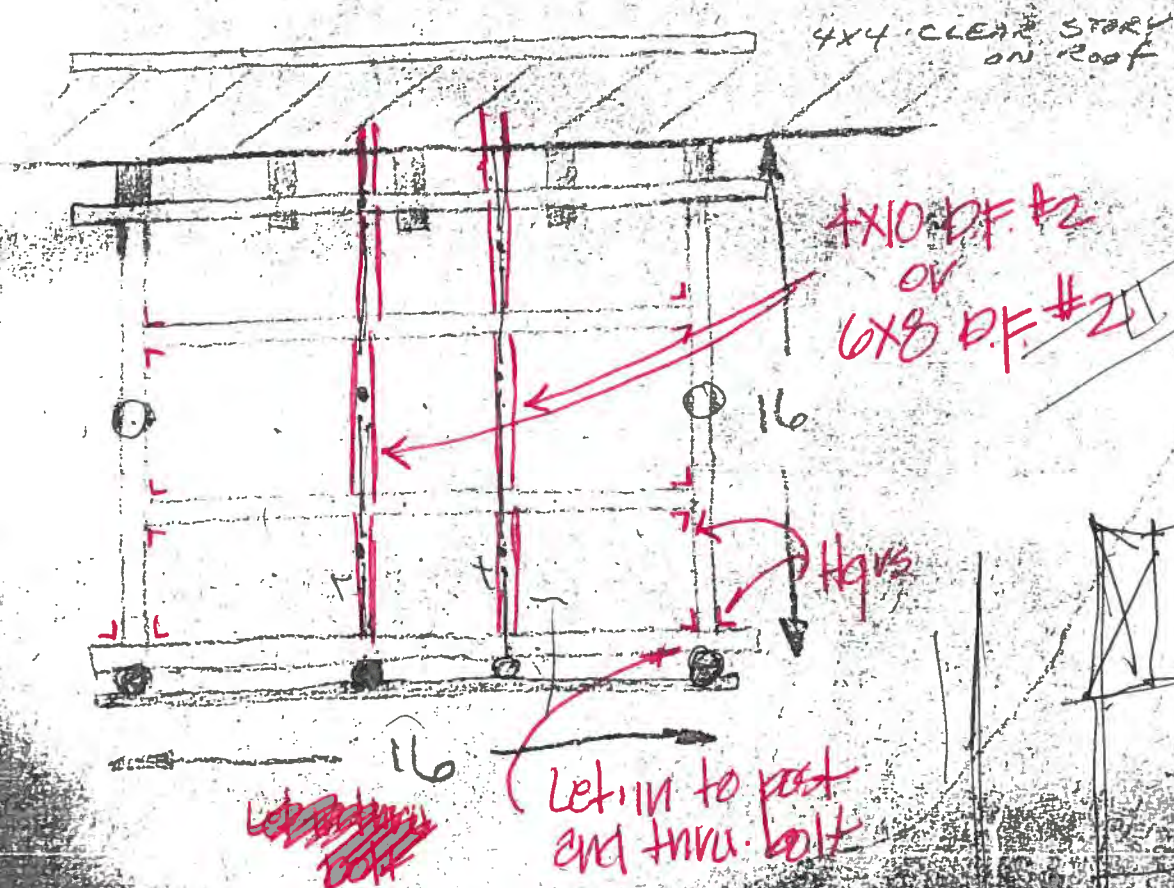 4X4 CLEAR STORY
ON ROOF
4X10 D.F. #2
or
6X8 D.F. #2
16
Hgrs
16
Let in to post
and thru. bolt